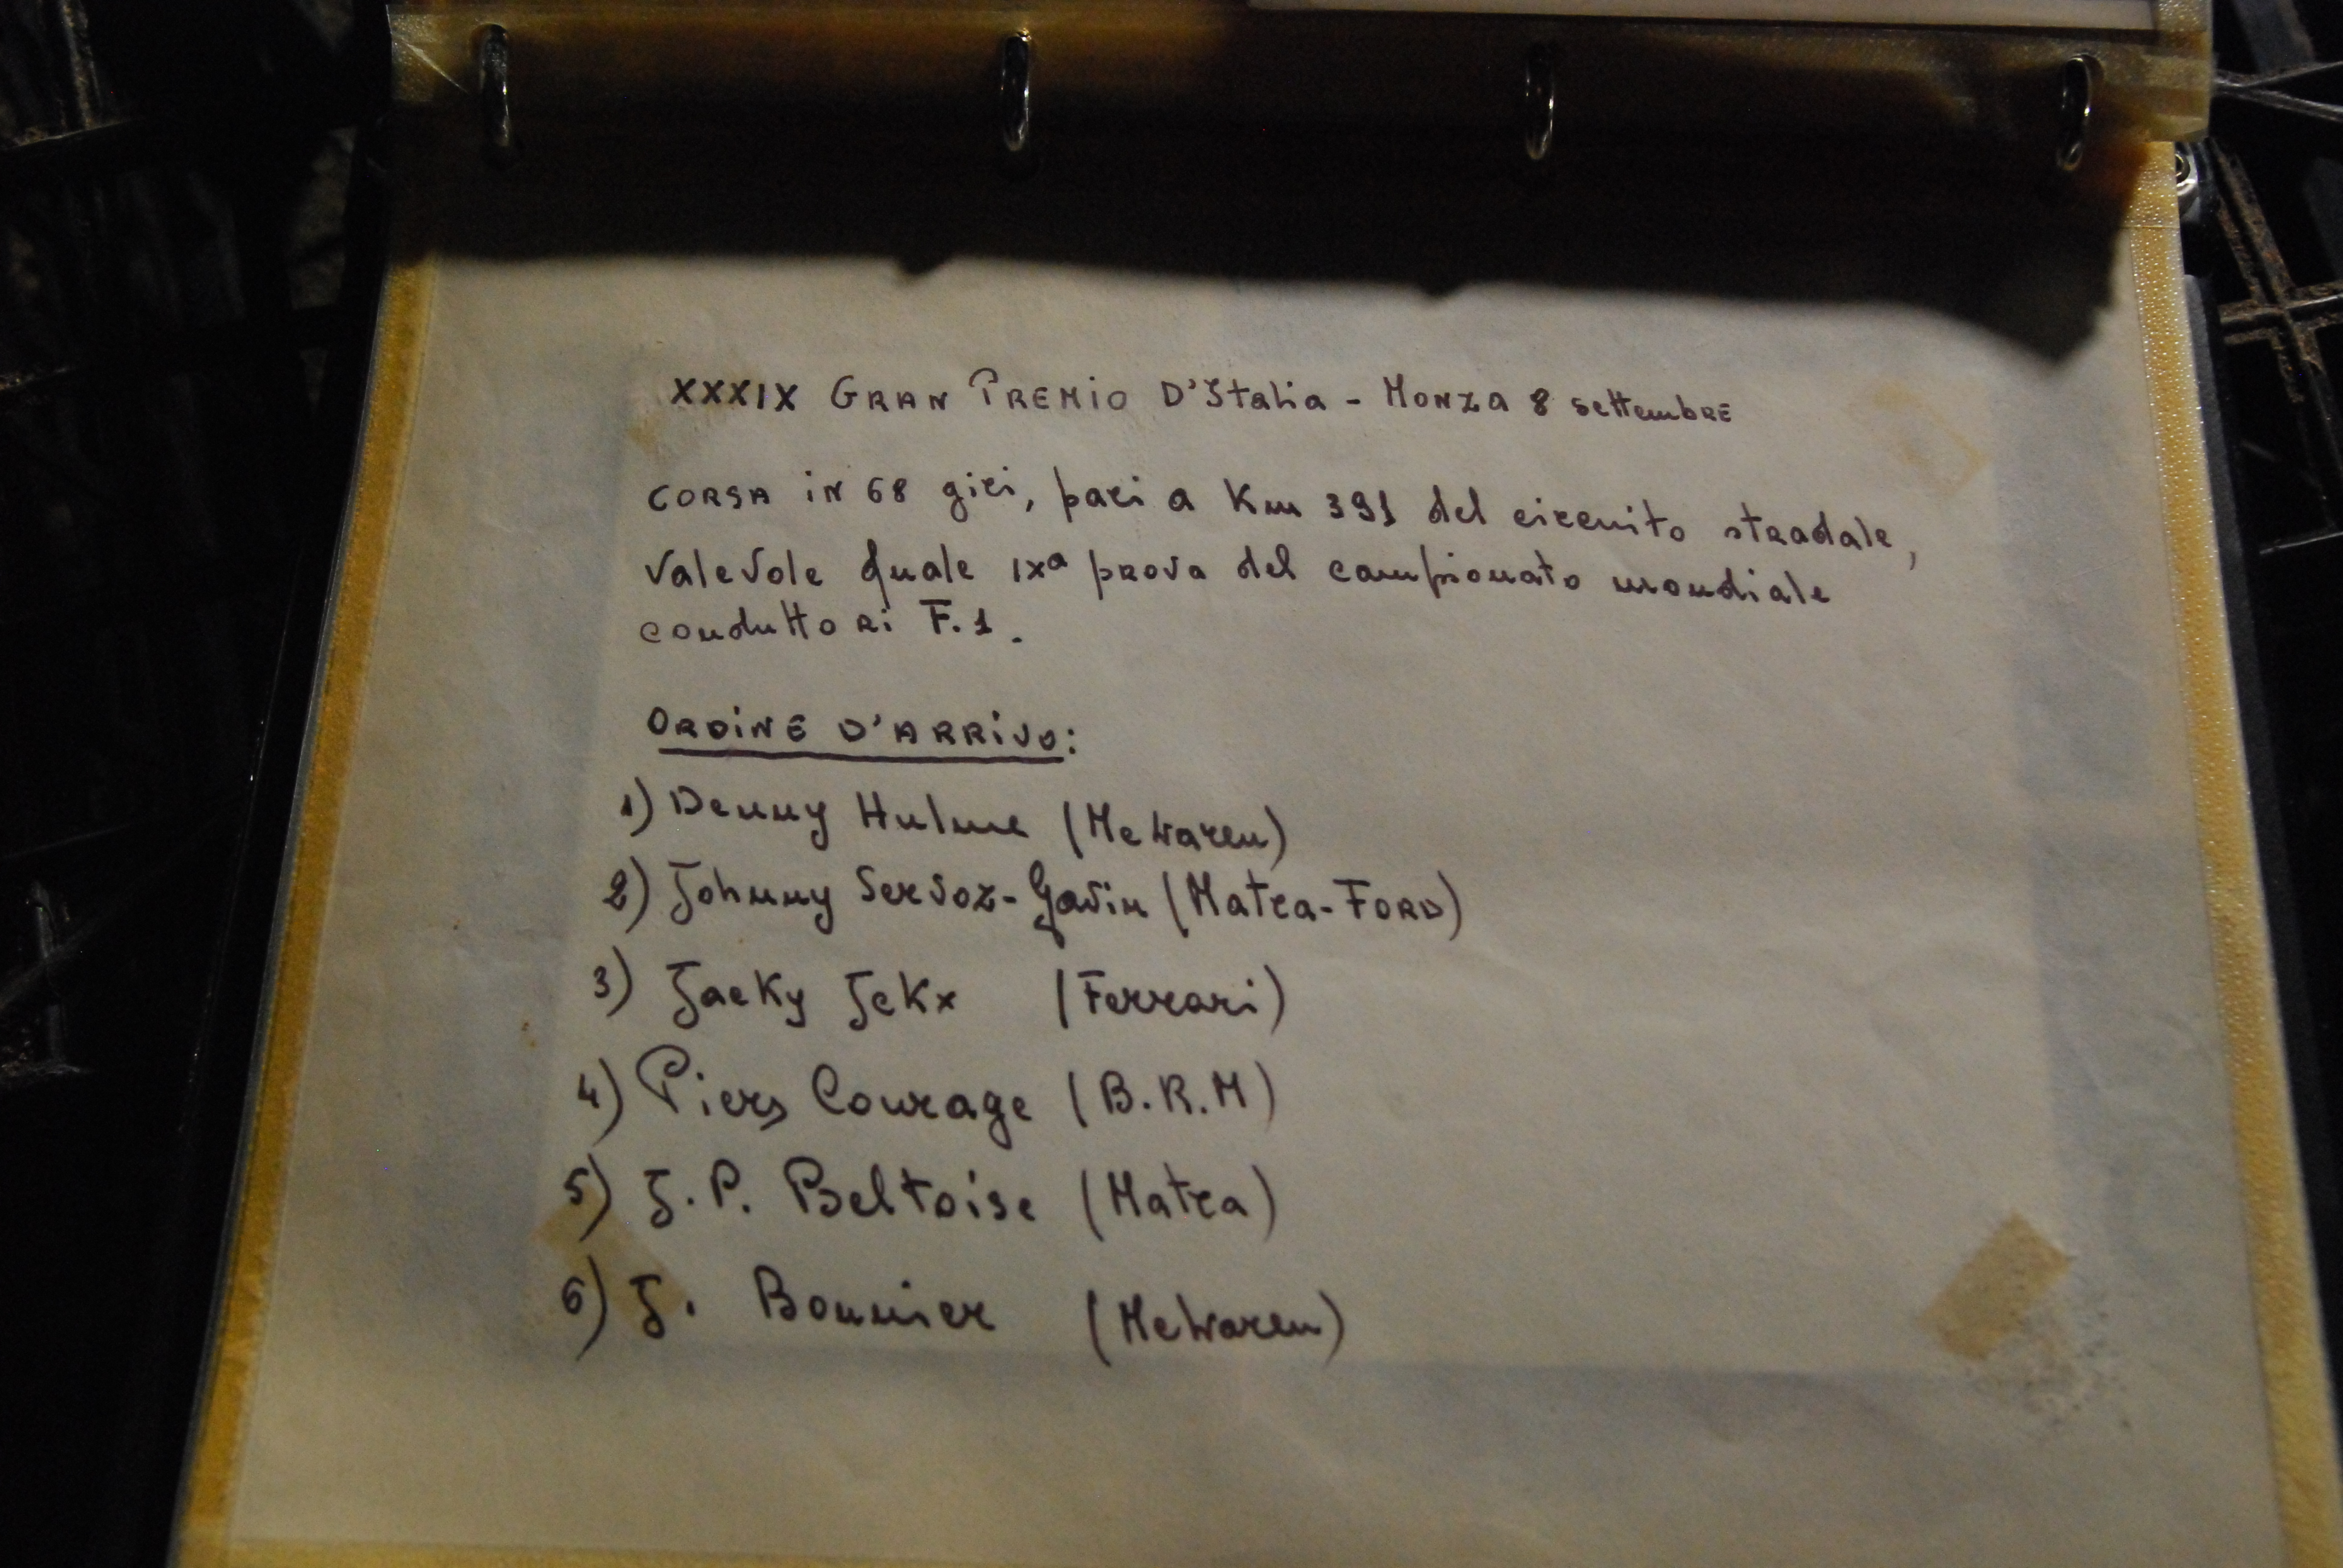 XXXIX GRAN PREMIO D'Italia - MONZA 8 settembRE
CORSA iN 68 giri, pari a Km 391 del circuito stradale,
valevole quale IXª prova del campionato mondiale
conduttori F.1.
ORDiNE D'ARRiVO:
1) Denny Hulme (Mc Waren)
2) Johnny Servoz-Gavin (Matra-FORD)
3) Jacky Jckx (Ferrari)
4) Piers Courage (B.R.M)
5) J.P. Beltoise (Matra)
6) J. Bonnier (McWaren)